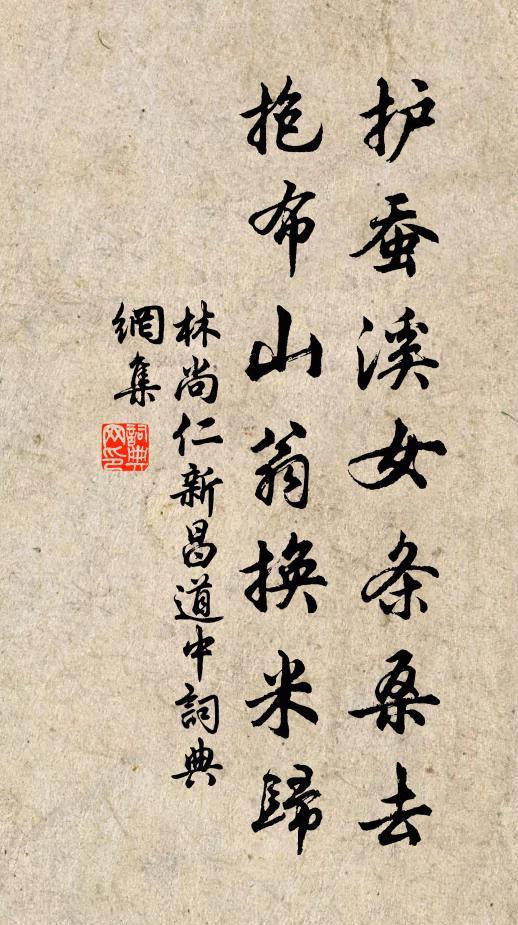 护蚕溪女条桑去
抱布山翁换米歸
林尚仁新昌道中詞典
網集
詞典
网印